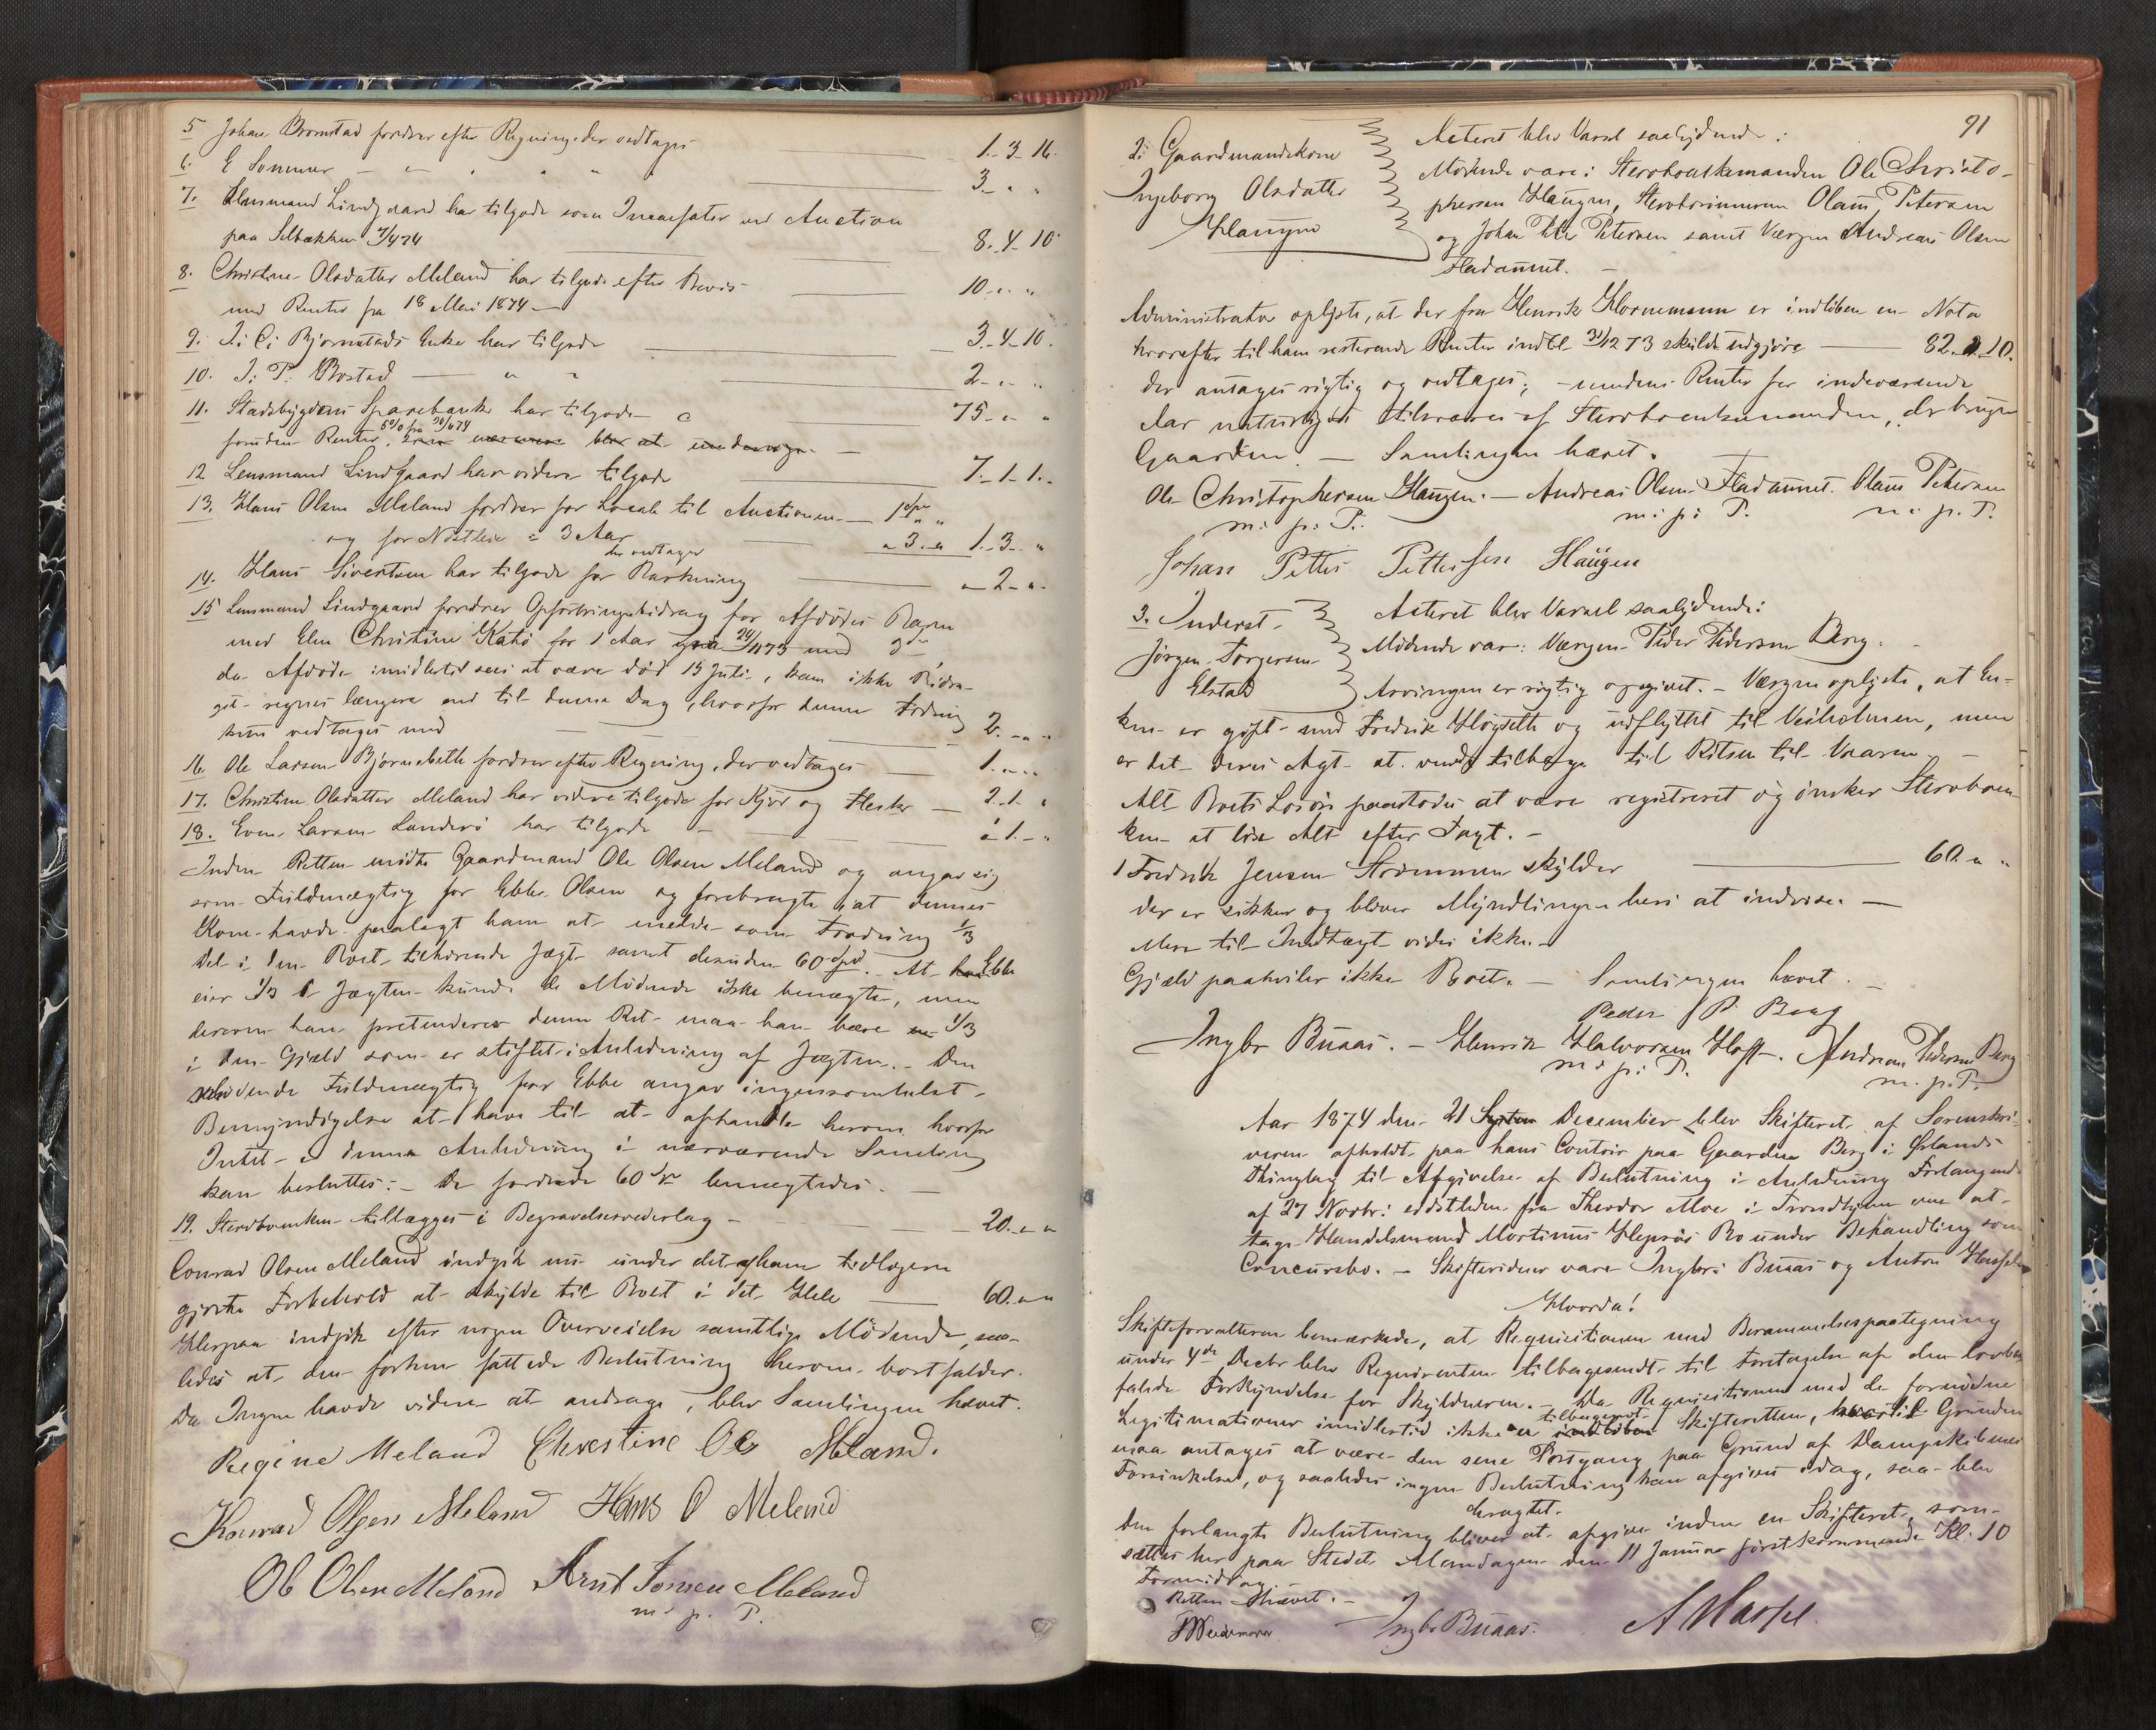 5 Johan Bromstad fordrer efter Regning, der vedtages 1 - 3 - 16.
6. E Sommer - " " " 3. " "
7. Lensmand Lindgaard har tilgode som Incassator ved Auction
paa Selbækken 8. 4. 10
8. Christine Olsdatter Meland har tilgode efter Bevis
med Renter fra 18 Mai 1874 10. " "
9. I: C: Bjørnstads Enke har tilgode 3 - 4 - 10.
10. I: P: Bostad " " 2 - " "
11. Stadsbygdens Sparebank har tilgode 75 - " "
foruden Renter, 5% fra
12 Lensmand Lindgaard har videre tilgode 7. - 1 - 1. -
13. Hans Olsen Meland fordrer for Locale til Auctionen 1 " "
og for i 3 Aar " 3. " 1. - 3 - "
der vedtages
14. Hans Sivertsen har tilgode for " 2 - " -
15 Lensmand Lindgaard fordrer Opfostringsbidrag for Afdødes Barn
med Elen Christine Katø for 1 Aar med
da Afdøde imidlertid sees at være død 15 Juli, kan ikke Bidra-
get regnes længere end til denne Dag, hvorfor denne Fordring
kun vedtages med 2. - " "
16. Ole Larsen Bjørnebeth fordrer efter Regning, der vedtages 1. " "
17. Christine Olsdatter Meland har videre tilgode for Kjør og 2. 1. "
18. Even Larsen Landerø har tilgode " 1. - "
Inden Retten mødte Gaardmand Ole Olsen Meland og angav sig
som Fuldmægtig for Ebbe Olsen og frembragte at dennes
Kone havde paalagt ham at melde som Fordring 1/3
Del i den Boet tilhørende Jægt samt desuden 60 Spd. At Ebbe
eier 1/3 i Jægten kunde de Mødende ikke benægte, men
dersom han pretenderer denne Ret maa han bære 1/3
i den Gjæld som er stiftet i Anledning af Jægten. - Den
mødende Fuldmægtig for Ebbe angav ingensomhelst
Bemyndigelse at have til at afhandle herom hvorfor
Intet i denne Anledning i nærværende Samling
kan besluttes: - De fordrede 60 Spd benægtedes. -
19. Sterboenken tillægges i Begravelsesvederlag 20. " "
Conrad Olsen Meland indgik nu under det af ham tidligere
gjorte Forbehold at skylde til Boet i det Hele 60. " "
Herpaa indgik efter nogen Overveielse samtlige Mødende, saa-
ledes at den forhen fattede Beslutning herom bortfalder.
Da Ingen havde videre at andrage, blev Samlingen hævet.
Regine Meland Chrestine Ols Meland.
Konrad Olsen Meland Hans O Meland
Ol Olsen Meland Arnt Jonsen Meland
m. p. P.
91
2. Gaardmandskone
Ingeborg Olsdatter
Haugen
Acteret blev Varsel saalydende:
Mødende vare: Sterboenkemanden Ole Christo-
phersen Haugen, Sterboerinnerne Olaus Petersen
og Johan Peter Petersen samt Værgen Andreas Olsen
Fladaunet. -
Administrator oplyste, at der fra Henrik Hornemann er indløben en Nota
hvorefter til ham resterende Renter indtil 31/12 73 skulde udgjøre 82. 1. 10.
der ansages rigtig og vedtages; - medens Renter for indeværende
Aar naturligvis tilsvares af Sterboenkemanden, der bruger
Gaarden. - Samlingen hævet.
Ole Christophersen Haugen. - Andreas Olsen Fladaunet. Olaus Petersen
m: p: P. m: p: P. m. p. P.
Johan Petter Pettersen Haugen
3. Inderst
Jørgen Torgersen
Elstad
Acteret blev Varsel saalydende:
Mødende var: Værgen Peder Pedersen Berg.
Arvingen er rigtig opgivet. - Værgen oplyste, at En-
ken er gift med Fredrik Høysette og udflyttet til Veiholmen, men
er det deres Agt at vende tilbage til Ritsen til Vaaren -
Alt Boets Løsøre paastodes at være registreret og ønsker Sterboen-
ken at løse Alt efter Taxt. -
1 Fredrik Jensen Strømmen skylder 60. " "
der er sikker og bliver Myndlingen heri at indvise. -
Mere til Indtægt vides ikke. -
Gjæld paahviler ikke Boet. - Samlingen hævet. -
Peder P Berg
Ingbr Buaas. - Henrik Halvorsen Hoff. Andreas Pedersen Berg
m: p: P. m. p. P.
Aar 1874 den 21 December blev Skifteret af Sorenskri-
veren afholdt paa hans Contoir paa Gaarden Berg i Ørlands
Thinglag til Afgivelse af Beslutning i Anledning Forlangende
af 27 Novbr: sidstleden fra Theodor Moe i Trondhjem om at
tage Handelsmand Martinus Hepsøs Bo under Behandling som
Concursbo. - Skiftevidner vare Ingbr: Buaas og Anton Hassel.
Hvorda!
Skifteforvalteren bemærkede, at Requisitionen med Berammelsespaategning
under 4de Decbr blev Requirenten tilbagesendt til Foretagelse af den lovbe-
falede Forkyndelse for Skyldneren. - Da Requisitionen med de fornødne
Legitimationer imidlertid ikke er tilbagesendt Skifteretten, hvortil Grunden
maa antages at være den sene Postgang paa Grund af Dampskibenes
Forsinkelse, og saaledes ingen Beslutning kan afgives idag, saa blev
eragtet.
Den forlangte Beslutning bliver at afgive inden en Skifteret, som
sættes her paa Stedet Mandagen den 11 Januar førstkommende Kl: 10
Formiddag. -
Retten hævet. -
Weidemann Ingbr Buaas. A Hassel.